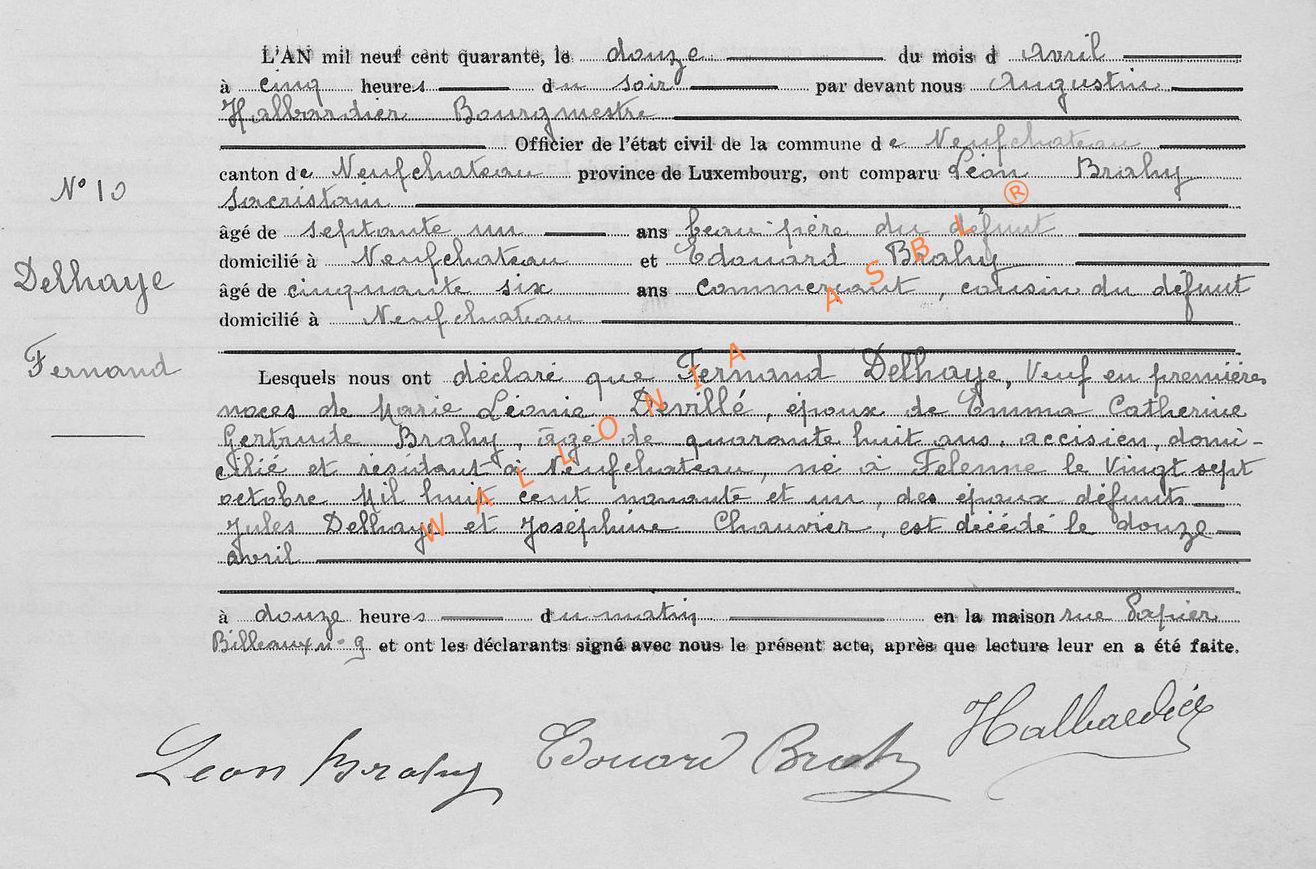 L'AN mil neuf cent quarante, le douze du mois d avril
à cinq heures du soir par devant nous Augustin
Halbardier Bourgmestre
Officier de l'état civil de la commune de Neufchateau
canton de Neufchateau province de Luxembourg, ont comparu Léon Brahy
N° 10
sacristain
âgé de septante un ans beau-père du défunt
domicilié à Neufchateau et Edouard Brahy
Delhaye
âgé de cinquante six ans commerçant, cousin du défunt
domicilié à Neufchateau
Fernand
Lesquels nous ont déclaré que Fernand Delhaye, Veuf en premières
noces de Marie Léonie Devillé, époux de Emma Catherine
Gertrude Brahy, âgé de quarante huit ans, accisien, domi-
cilié et résidant à Neufchateau, né à Felenne le Vingt sept
octobre Mil huit cent nonante et un, des époux défunts
Jules Delhaye et Joséphine Chauvier, est décédé le douze
avril
à douze heures du matin en la maison rue
n° 9 et ont les déclarants signé avec nous le présent acte, après que lecture leur en a été faite.
Leon Brahy Edouard Brahy Halbardier
WALLONIA ASBL ®